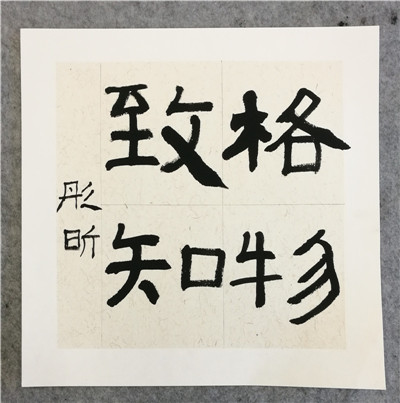 格物
致知
彤昕